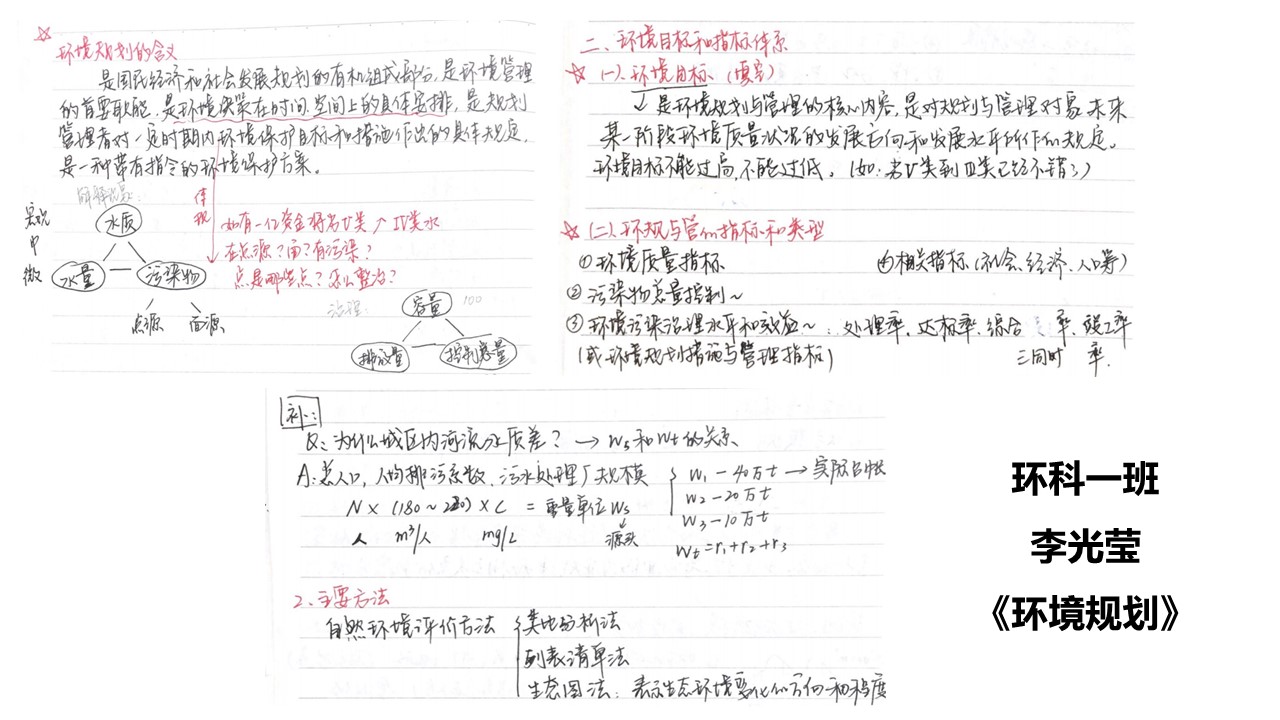 环境规划的含义
是国民经济和社会发展规划的有机组成部分,是环境管理
的首要职能,是环境决策在时间、空间上的具体安排,是规划
管理者对一定时期内环境保护目标和措施作出的具体规定,
是一种带有指令的环境保护方案。
宏观
中
微
水质
水量
污染物
点源 面源
体现
如有一亿资金将劣V类↗IV类水
在点源?面?有污染?
点是哪些点?怎么整治?
治理:
容量 100
排放量
控制总量
二、环境目标和指标体系
(一)、环境目标(填空)
是环境规划与管理的核心内容,是对规划与管理对象未来
某一阶段环境质量状况的发展方向和发展水平所作的规定。
环境目标不能过高,不能过低。(如:劣V类到Ⅲ类已经不错了)
(二)、环规与管的指标和类型
①环境质量指标
④相关指标(社会、经济、人口等)
②污染物总量控制~
③环境污染治理水平和效益~:处理率,达标率,综合 率,竣工率
(或环境规划措施与管理指标) 三同时 率.
补:
Q:为什么城区内河流水质差?→Ws和Wt的关系
A:总人口,人均排污系数,污水处理厂规模
N×(180~220)×C=重量单位Ws
人 m³/人 mg/L 源头
W1-40万t→实际
W2-20万t
W3-10万t
Wt=r1+r2+r3
2、主要方法
自然环境评价方法
类比分析法
列表清单法
生态图法:表示生态环境变化的方向和程度
环科一班
李光莹
《环境规划》